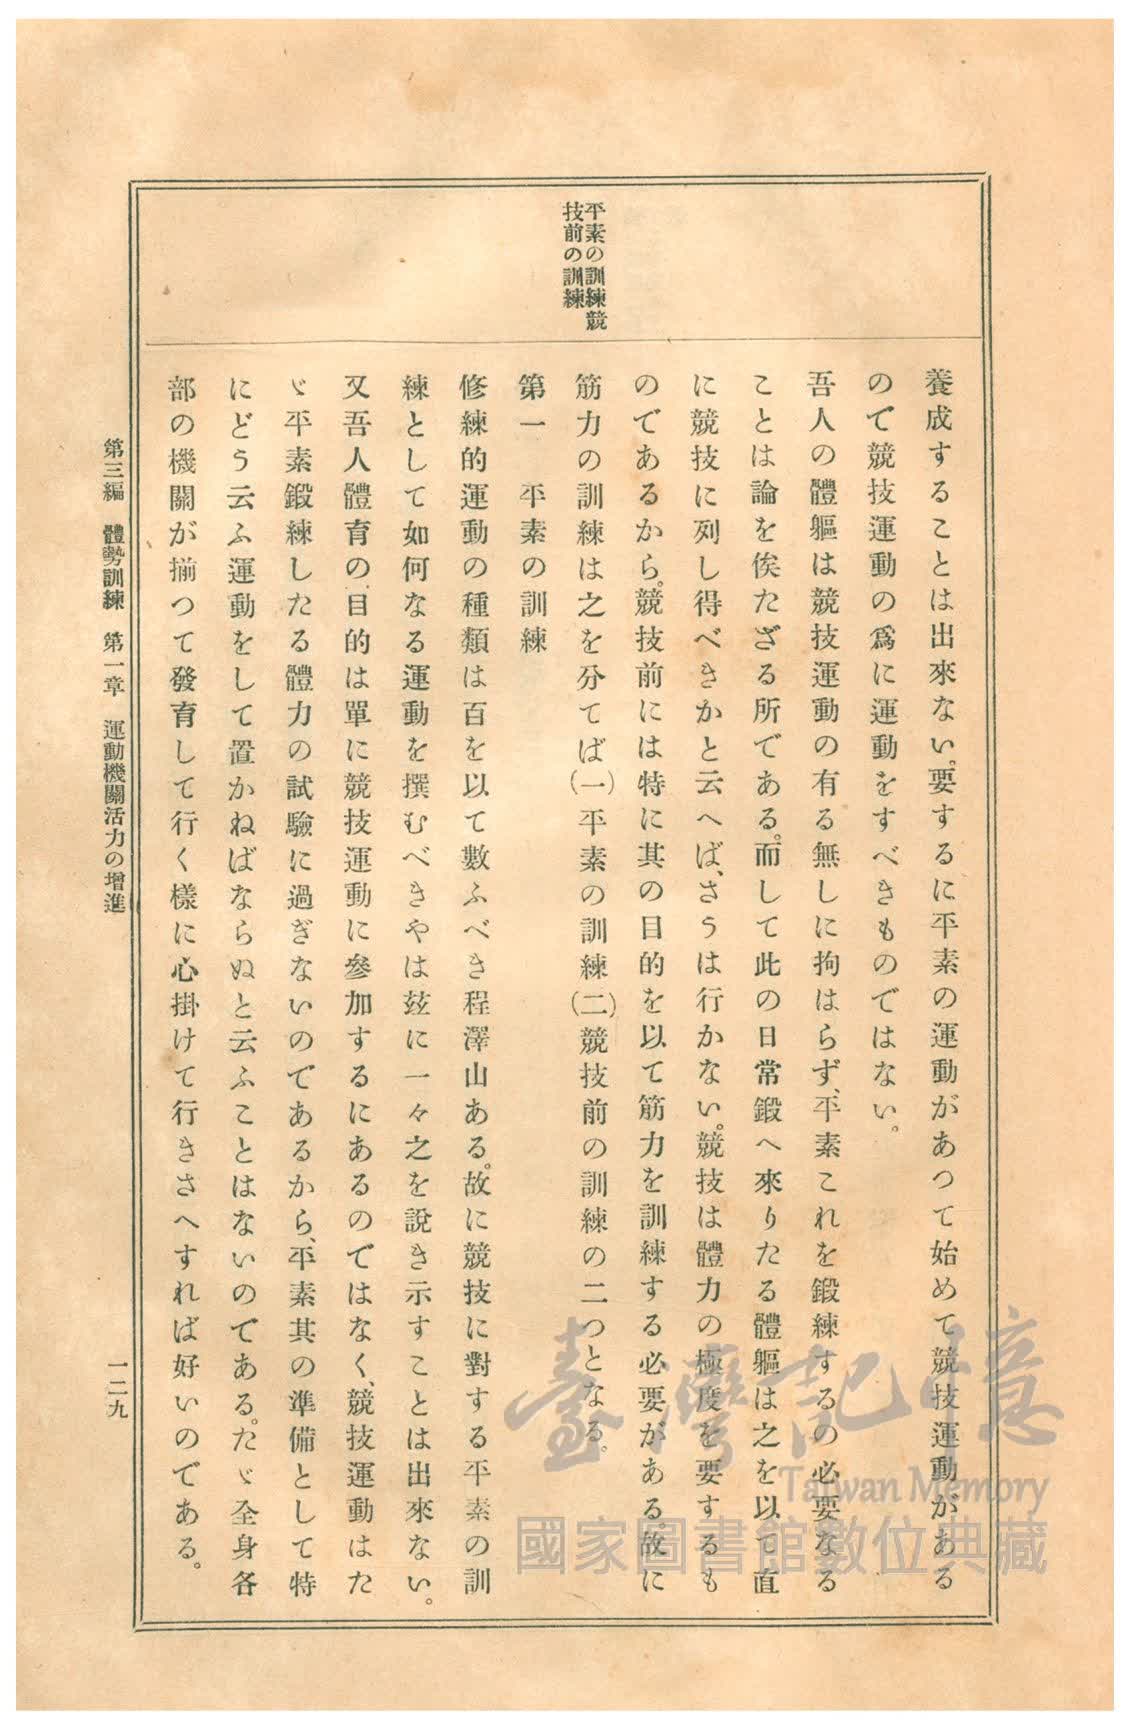 平素の訓練競
技前の訓練
養成することは出來ない。要するに平素の運動があつて始めて競技運動がある
ので競技運動の爲に運動をすべきものではない。
吾人の體軀は競技運動の有る無しに拘はらず、平素これを鍛練するの必要なる
ことは論を俟たざる所である。而して此の日常鍛へ來りたる體軀は之を以て直
に競技に列し得べきかと云へば、さうは行かない。競技は體力の極度を要するも
のであるから。競技前には特に其の目的を以て筋力を訓練する必要がある。故に
筋力の訓練は之を分てば(一)平素の訓練(二)競技前の訓練の二つとなる。
第一　平素の訓練
修練的運動の種類は百を以て數ふべき程澤山ある。故に競技に對する平素の訓
練として如何なる運動を撰むべきやは玆に一々之を說き示すことは出來ない。
又吾人體育の目的は單に競技運動に參加するにあるのではなく、競技運動はた
ゞ平素鍛練したる體力の試驗に過ぎないのであるから、平素其の準備として特
にどう云ふ運動をして置かねばならぬと云ふことはないのである。たゞ全身各
部の機關が揃つて發育して行く樣に心掛けて行きさへすれば好いのである。
第三編　體勢訓練　第一章　運動機關活力の增進
一二九
臺灣記憶
Taiwan Memory
國家圖書館數位典藏